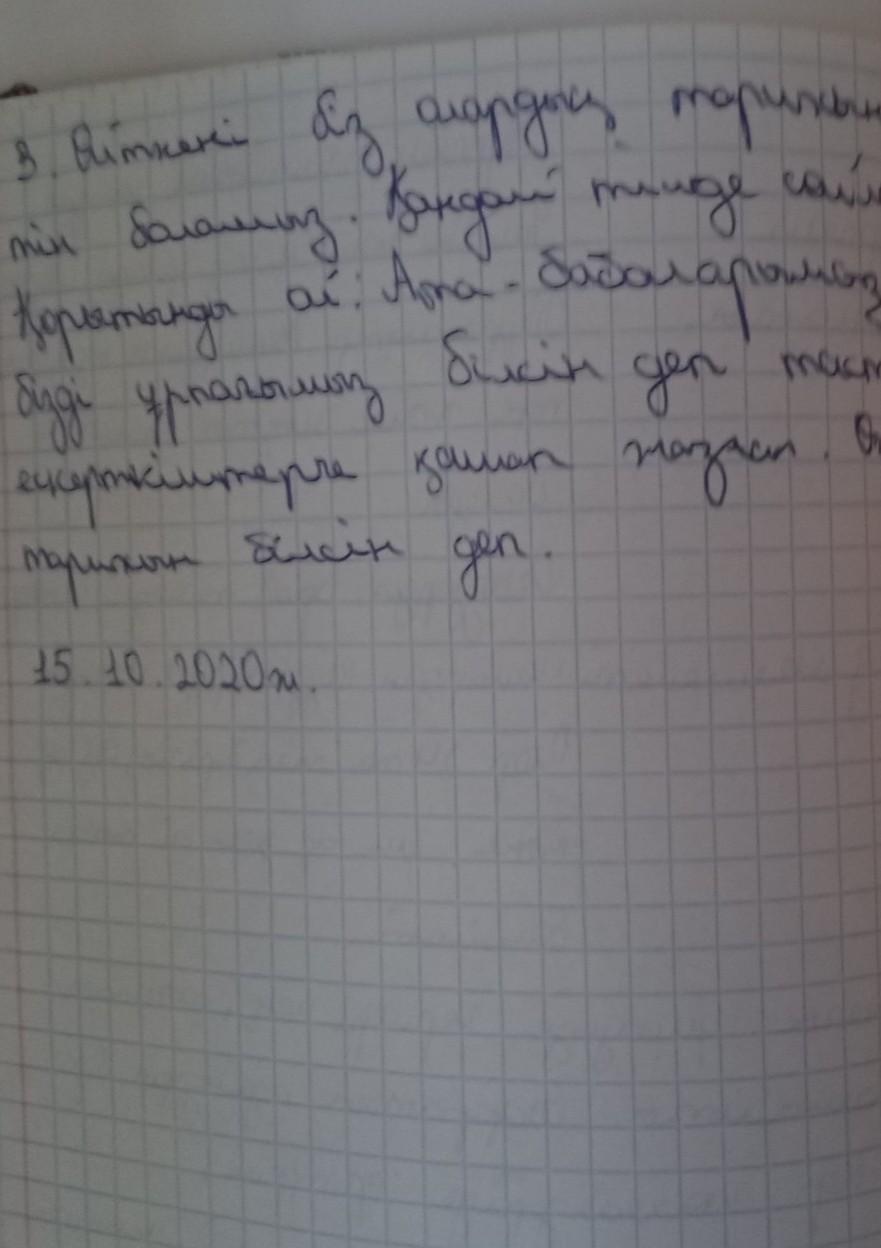 3. Өйткені біз олардың тарихын
тін боламыз. Қандай тілде сөйл
Қорытынды ой: Ата-бабаларымыз
бізді ұрпағымыз білсін деп таст
ескерткіштерге қашап жазған. Ө
тарихын білсін деп.
15.10.2020ж.